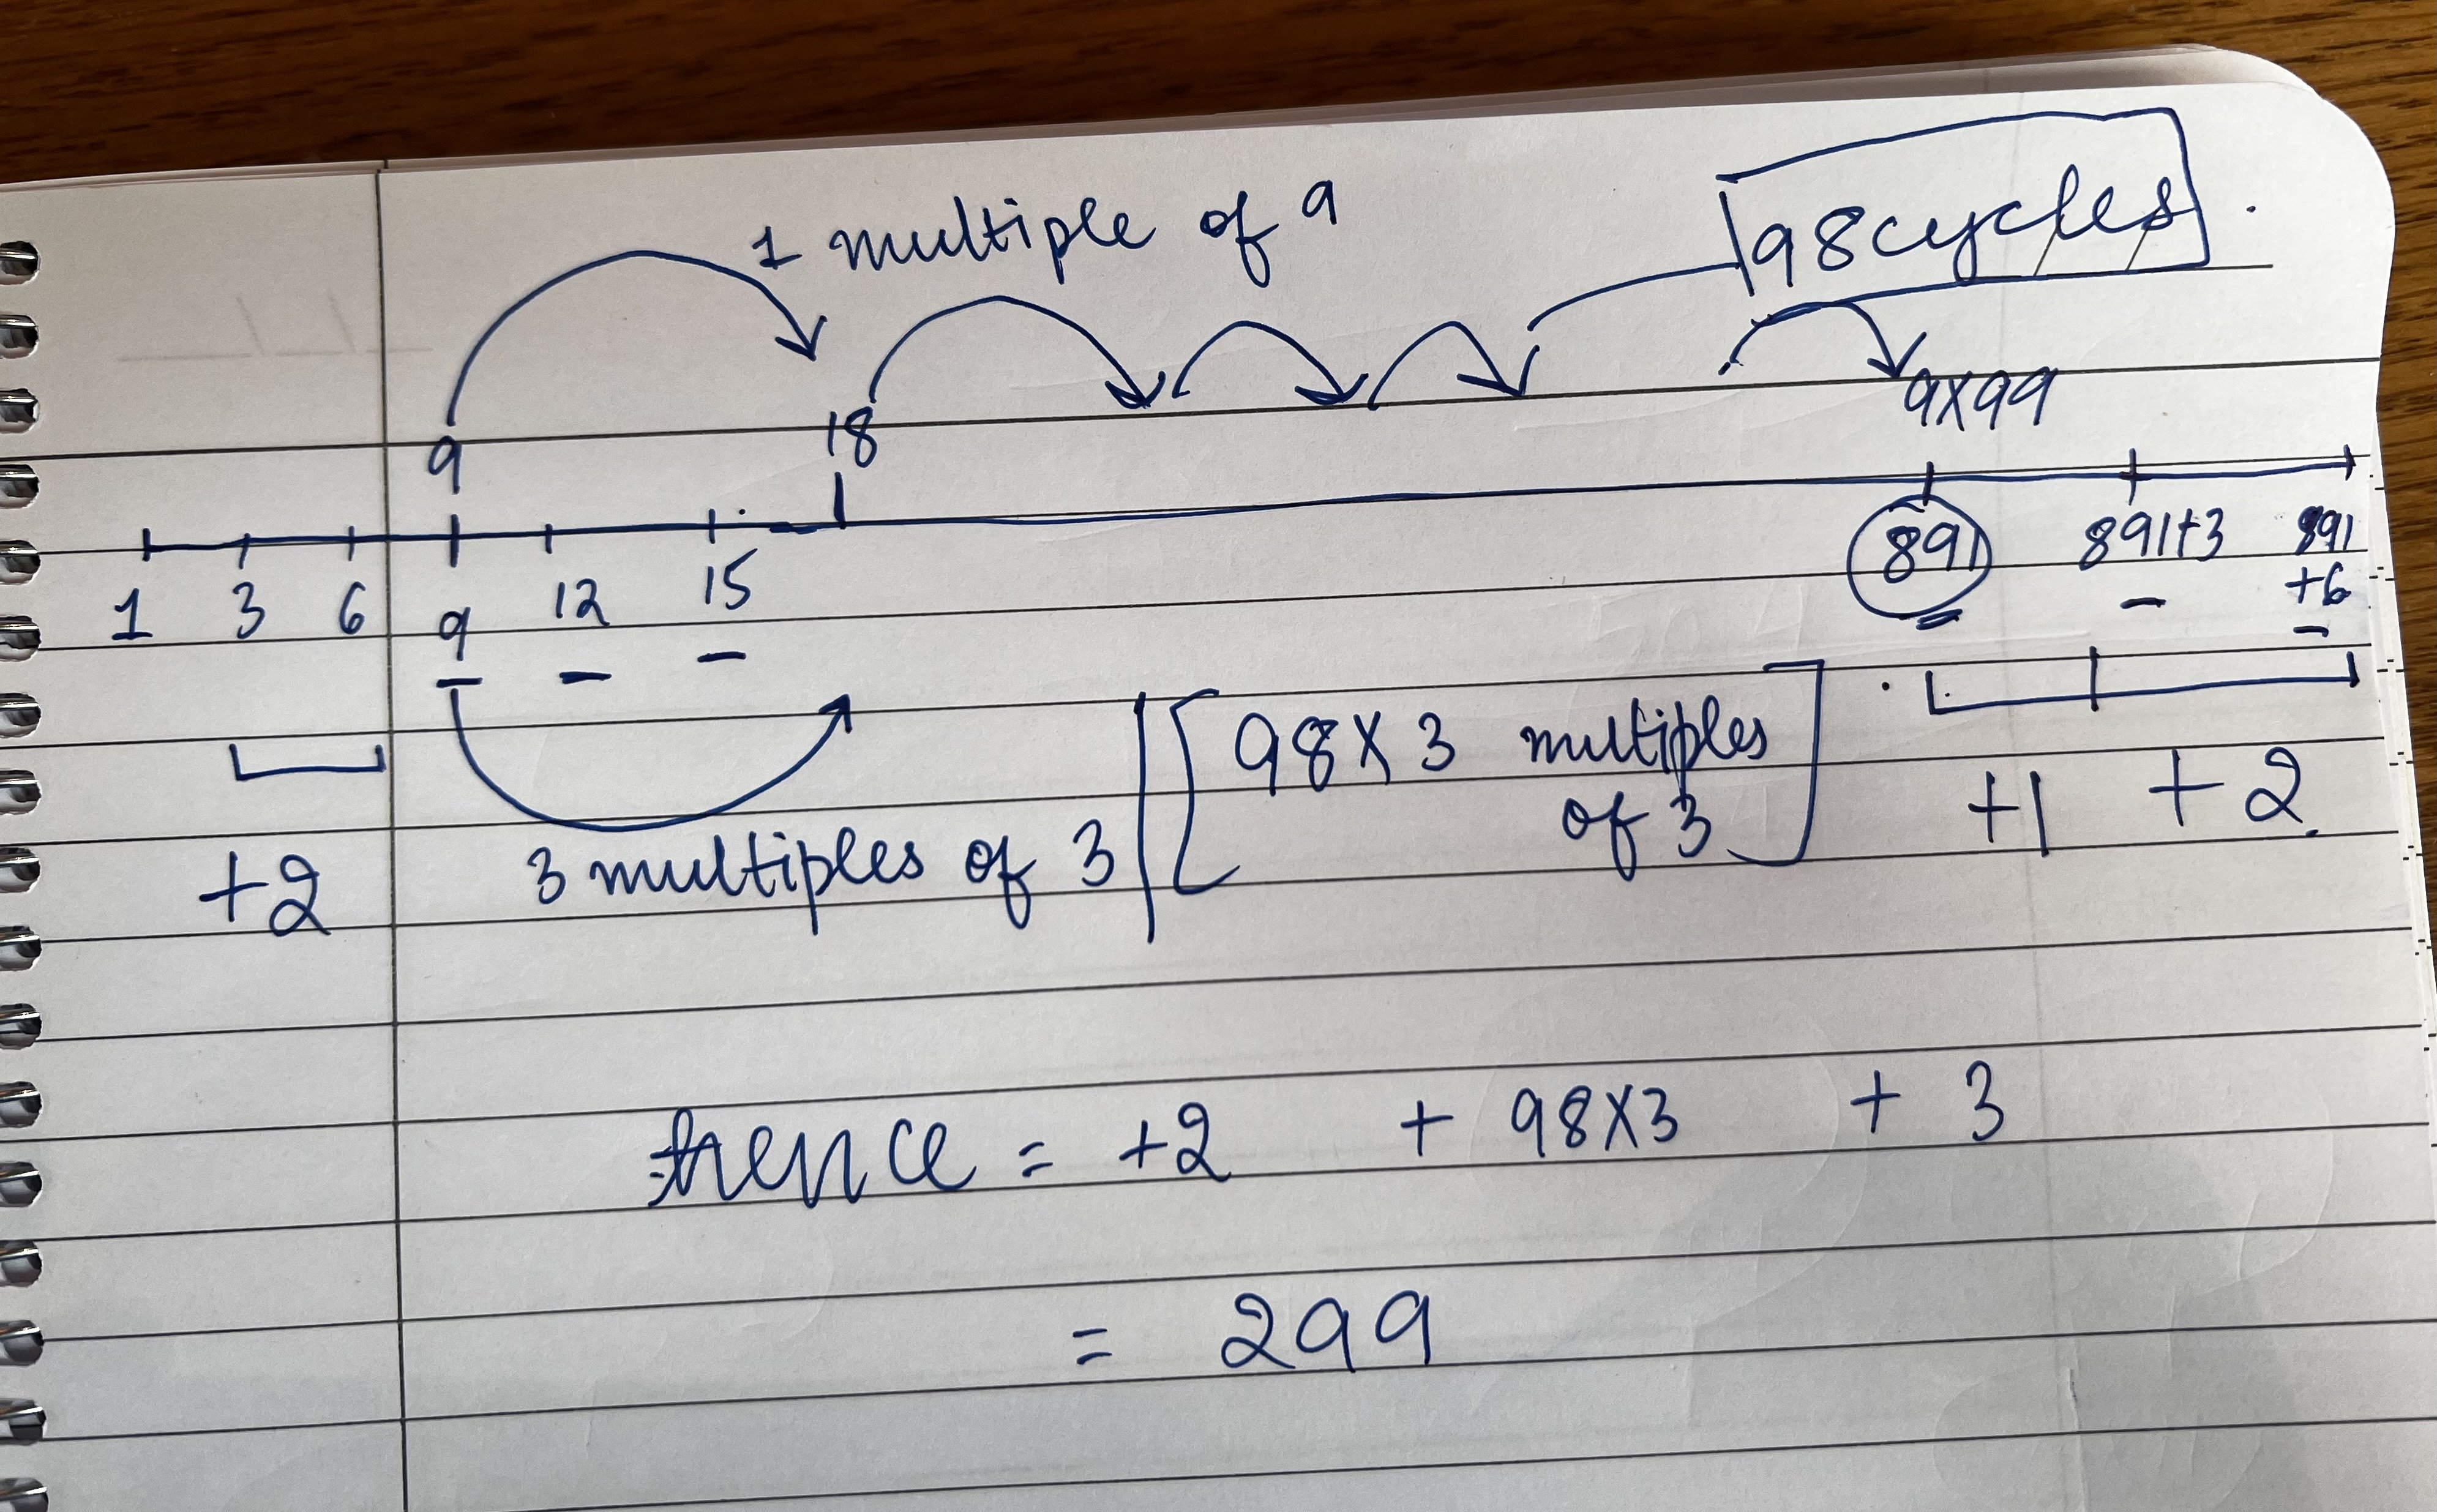 1 multiple of 9
98cycles
9 18 9x99
1 3 6 9 12 15 891 891+3 891
+6
98x3 multiples
of 3
+2 3 multiples of 3 +1 +2
Hence = +2 + 98x3 + 3
= 299